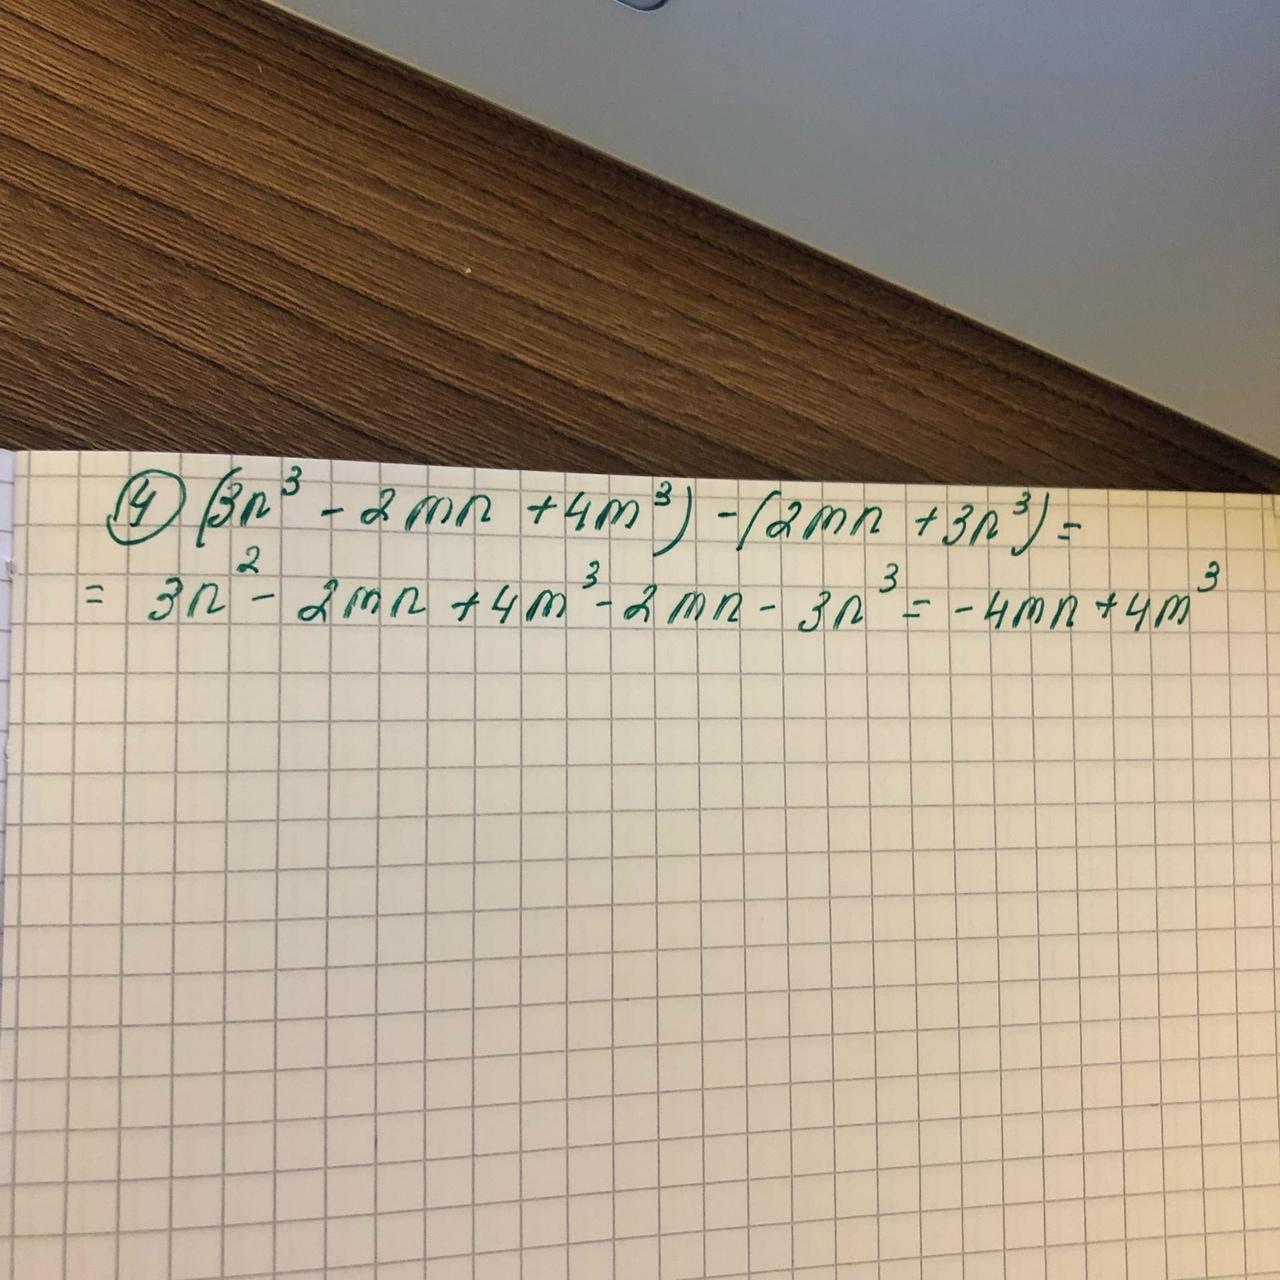 ④ (3n³ - 2mn + 4m³) - (2mn + 3n³) =
= 3n² - 2mn + 4m³ - 2mn - 3n³ = -4mn + 4m³